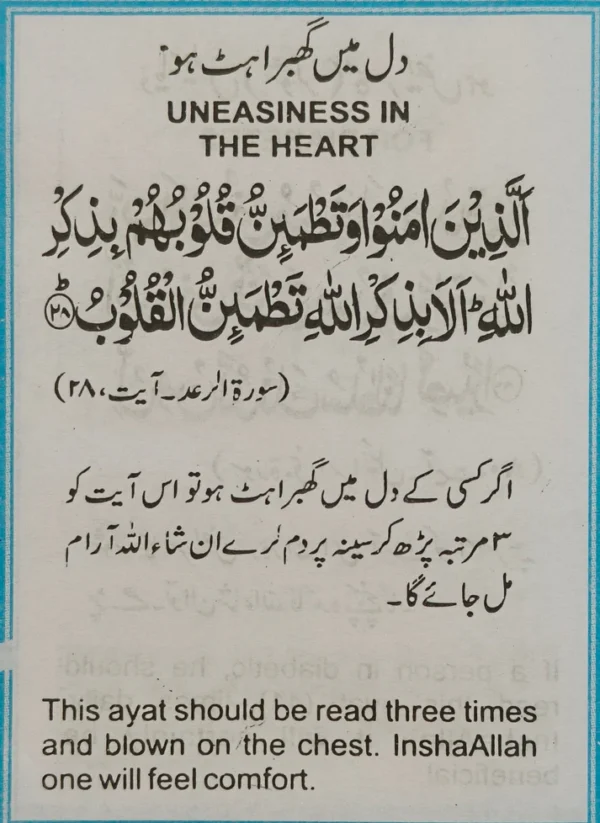 دل میں گھبراہٹ ہو
UNEASINESS IN
THE HEART
اَلَّذِیْنَ اٰمَنُوْا وَتَطْمَىِٕنُّ قُلُوْبُهُمْ بِذِكْرِ
اللّٰهِ ؕ اَلَا بِذِكْرِ اللّٰهِ تَطْمَىِٕنُّ الْقُلُوْبُ ؕ ﴿۲۸﴾
(سورۃ الرعد۔ آیت، ۲۸)
اگر کسی کے دل میں گھبراہٹ ہو تو اس آیت کو
۳ مرتبہ پڑھ کر سینہ پر دم کرے ان شاء اللہ آرام
مل جائے گا۔
This ayat should be read three times
and blown on the chest. InshaAllah
one will feel comfort.